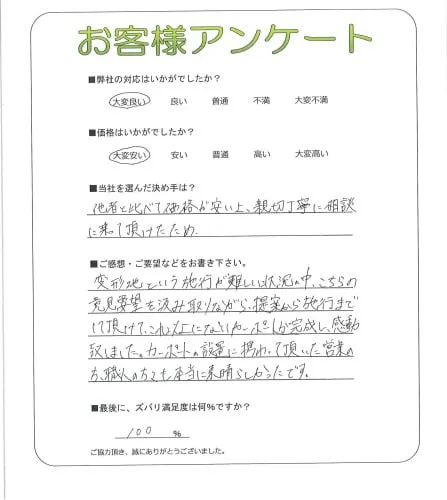 お客様アンケート
■弊社の対応はいかがでしたか？
大変良い 良い 普通 不満 大変不満
■価格はいかがでしたか？
大変安い 安い 普通 高い 大変高い
■当社を選んだ決め手は？
他者と比べて価格が安い上、親切丁寧に相談
に乗って頂けたため。
■ご感想・ご要望などをお書き下さい。
変形地という施行が難しい状況の中、こちらの
意見要望を汲み取りながら、提案から施行まで
して頂けて、これ以上にないカーポートが完成し、感動
致しました。カーポートの設置に携わって頂いた営業の
方、職人の方々も本当に素晴らしかったです。
■最後に、ズバリ満足度は何％ですか？
100 ％
ご協力頂き、誠にありがとうございました。